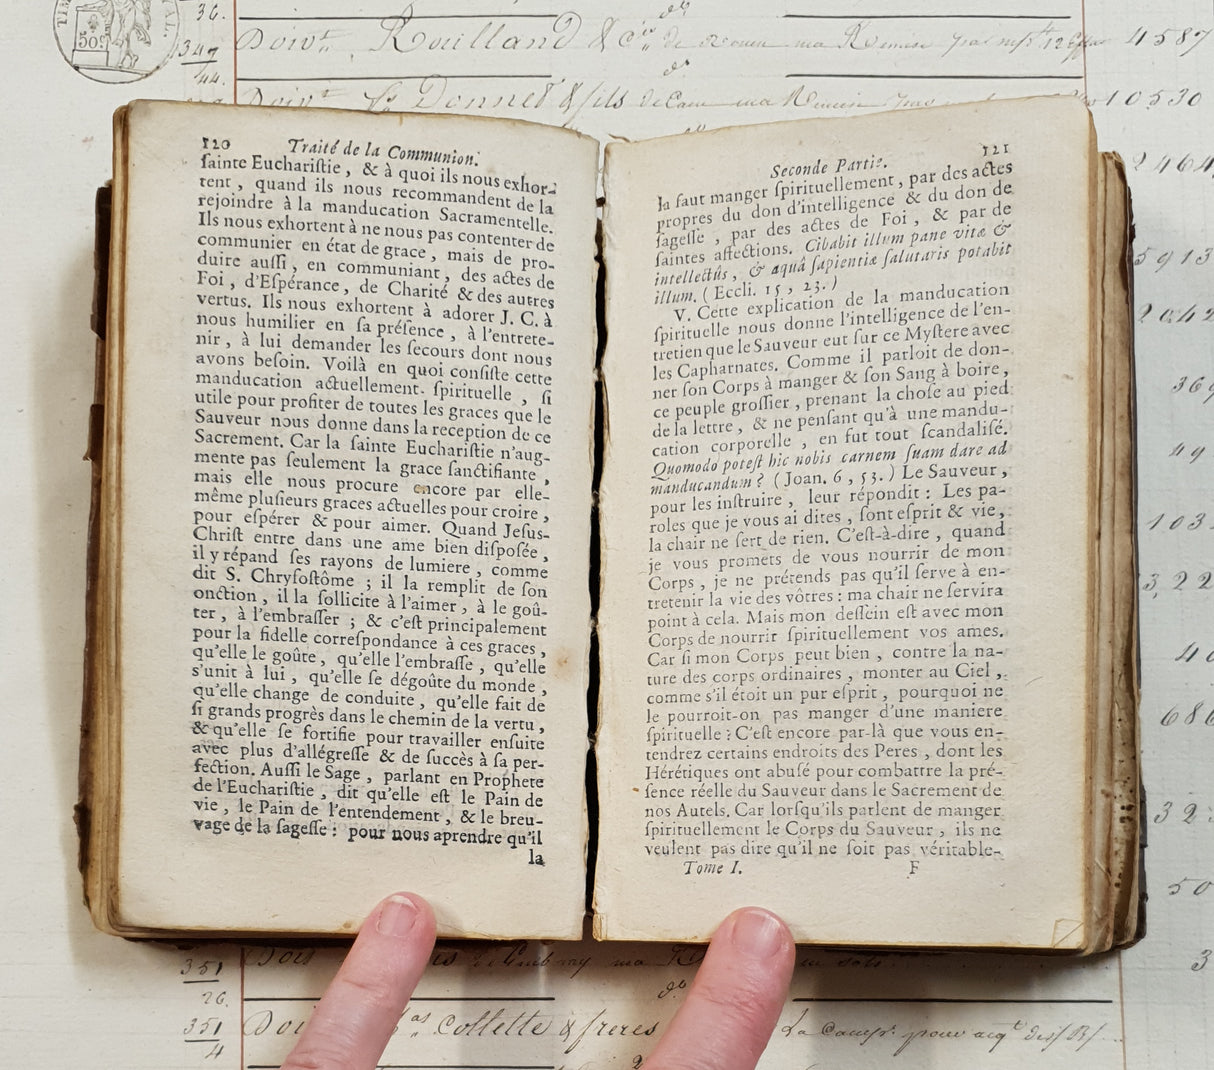 36.
347
44.
Doiv.t Rouilland & C.ie de Rouen ma Remise 4587
Doiv.t Le Donnet & fils de Caen ma Remise 10530
120 Traité de la Communion.
ſainte Euchariſtie, & à quoi ils nous exhor-
tent, quand ils nous recommandent de la
rejoindre à la manducation Sacramentelle.
Ils nous exhortent à ne nous pas contenter de
communier en état de grace, mais de pro-
duire auſſi, en communiant, des actes de
Foi, d'Eſpérance, de Charité & des autres
vertus. Ils nous exhortent à adorer J. C. à
nous humilier en ſa préſence, à l'entrete-
nir, à lui demander les ſecours dont nous
avons beſoin. Voilà en quoi conſiſte cette
manducation actuellement ſpirituelle, ſi
utile pour profiter de toutes les graces que le
Sauveur nous donne dans la réception de ce
Sacrement. Car la ſainte Euchariſtie n'aug-
mente pas ſeulement la grace ſanctifiante,
mais elle nous procure encore par elle-
même pluſieurs graces actuelles pour croire,
pour eſpérer & pour aimer. Quand Jeſus-
Chriſt entre dans une ame bien diſpoſée,
il y répand ſes rayons de lumiere, comme
dit S. Chryſoſtôme ; il la remplit de ſon
onction, il la ſollicite à l'aimer, à le goû-
ter, à l'embraſſer ; & c'eſt principalement
pour la fidelle correſpondance à ces graces,
qu'elle le goûte, qu'elle l'embraſſe, qu'elle
s'unit à lui, qu'elle ſe dégoûte du monde,
qu'elle change de conduite, qu'elle fait de
ſi grands progrès dans le chemin de la vertu,
& qu'elle ſe fortifie pour travailler enſuite
avec plus d'allégreſſe & de ſuccès à ſa per-
fection. Auſſi le Sage, parlant en Prophete
de l'Euchariſtie, dit qu'elle eſt le Pain de
vie, le Pain de l'entendement, & le breu-
vage de la ſageſſe : pour nous aprendre qu'il
la
Seconde Partie. 121
la faut manger ſpirituellement, par des actes
propres du don d'intelligence & du don de
ſageſſe, par des actes de Foi, & par de
ſaintes affections. Cibabit illum pane vitæ &
intellectûs, & aquâ ſapientiæ ſalutaris potabit
illum. (Eccli. 15, 23.)
V. Cette explication de la manducation
ſpirituelle nous donne l'intelligence de l'en-
tretien que le Sauveur eut ſur ce Myſtere avec
les Capharnates. Comme il parloit de don-
ner ſon Corps à manger & ſon Sang à boire,
ce peuple groſſier, prenant la choſe au pied
de la lettre, & ne penſant qu'à une mandu-
cation corporelle, en fut tout ſcandaliſé.
Quomodo poteſt hic nobis carnem ſuam dare ad
manducandum ? (Joan. 6, 53.) Le Sauveur,
pour les inſtruire, leur répondit : Les pa-
roles que je vous ai dites, ſont eſprit & vie,
la chair ne ſert de rien. C'eſt-à-dire, quand
je vous promets de vous nourrir de mon
Corps, je ne prétends pas qu'il ſerve à en-
tretenir la vie des vôtres : ma chair ne ſervira
point à cela. Mais mon deſſein eſt avec mon
Corps de nourrir ſpirituellement vos ames.
Car ſi mon Corps peut bien, contre la na-
ture des corps ordinaires, monter au Ciel,
comme s'il étoit un pur eſprit, pourquoi ne
le pourroit-on pas manger d'une maniere
ſpirituelle ? C'eſt encore par-là que vous en-
tendrez certains endroits des Peres, dont les
Hérétiques ont abuſé pour combattre la pré-
ſence réelle du Sauveur dans le Sacrement de
nos Autels. Car lorſqu'ils parlent de manger
ſpirituellement le Corps du Sauveur, ils ne
veulent pas dire qu'il ne ſoit pas véritable-
Tome I. F
351
26.
351
4
Collette & freres